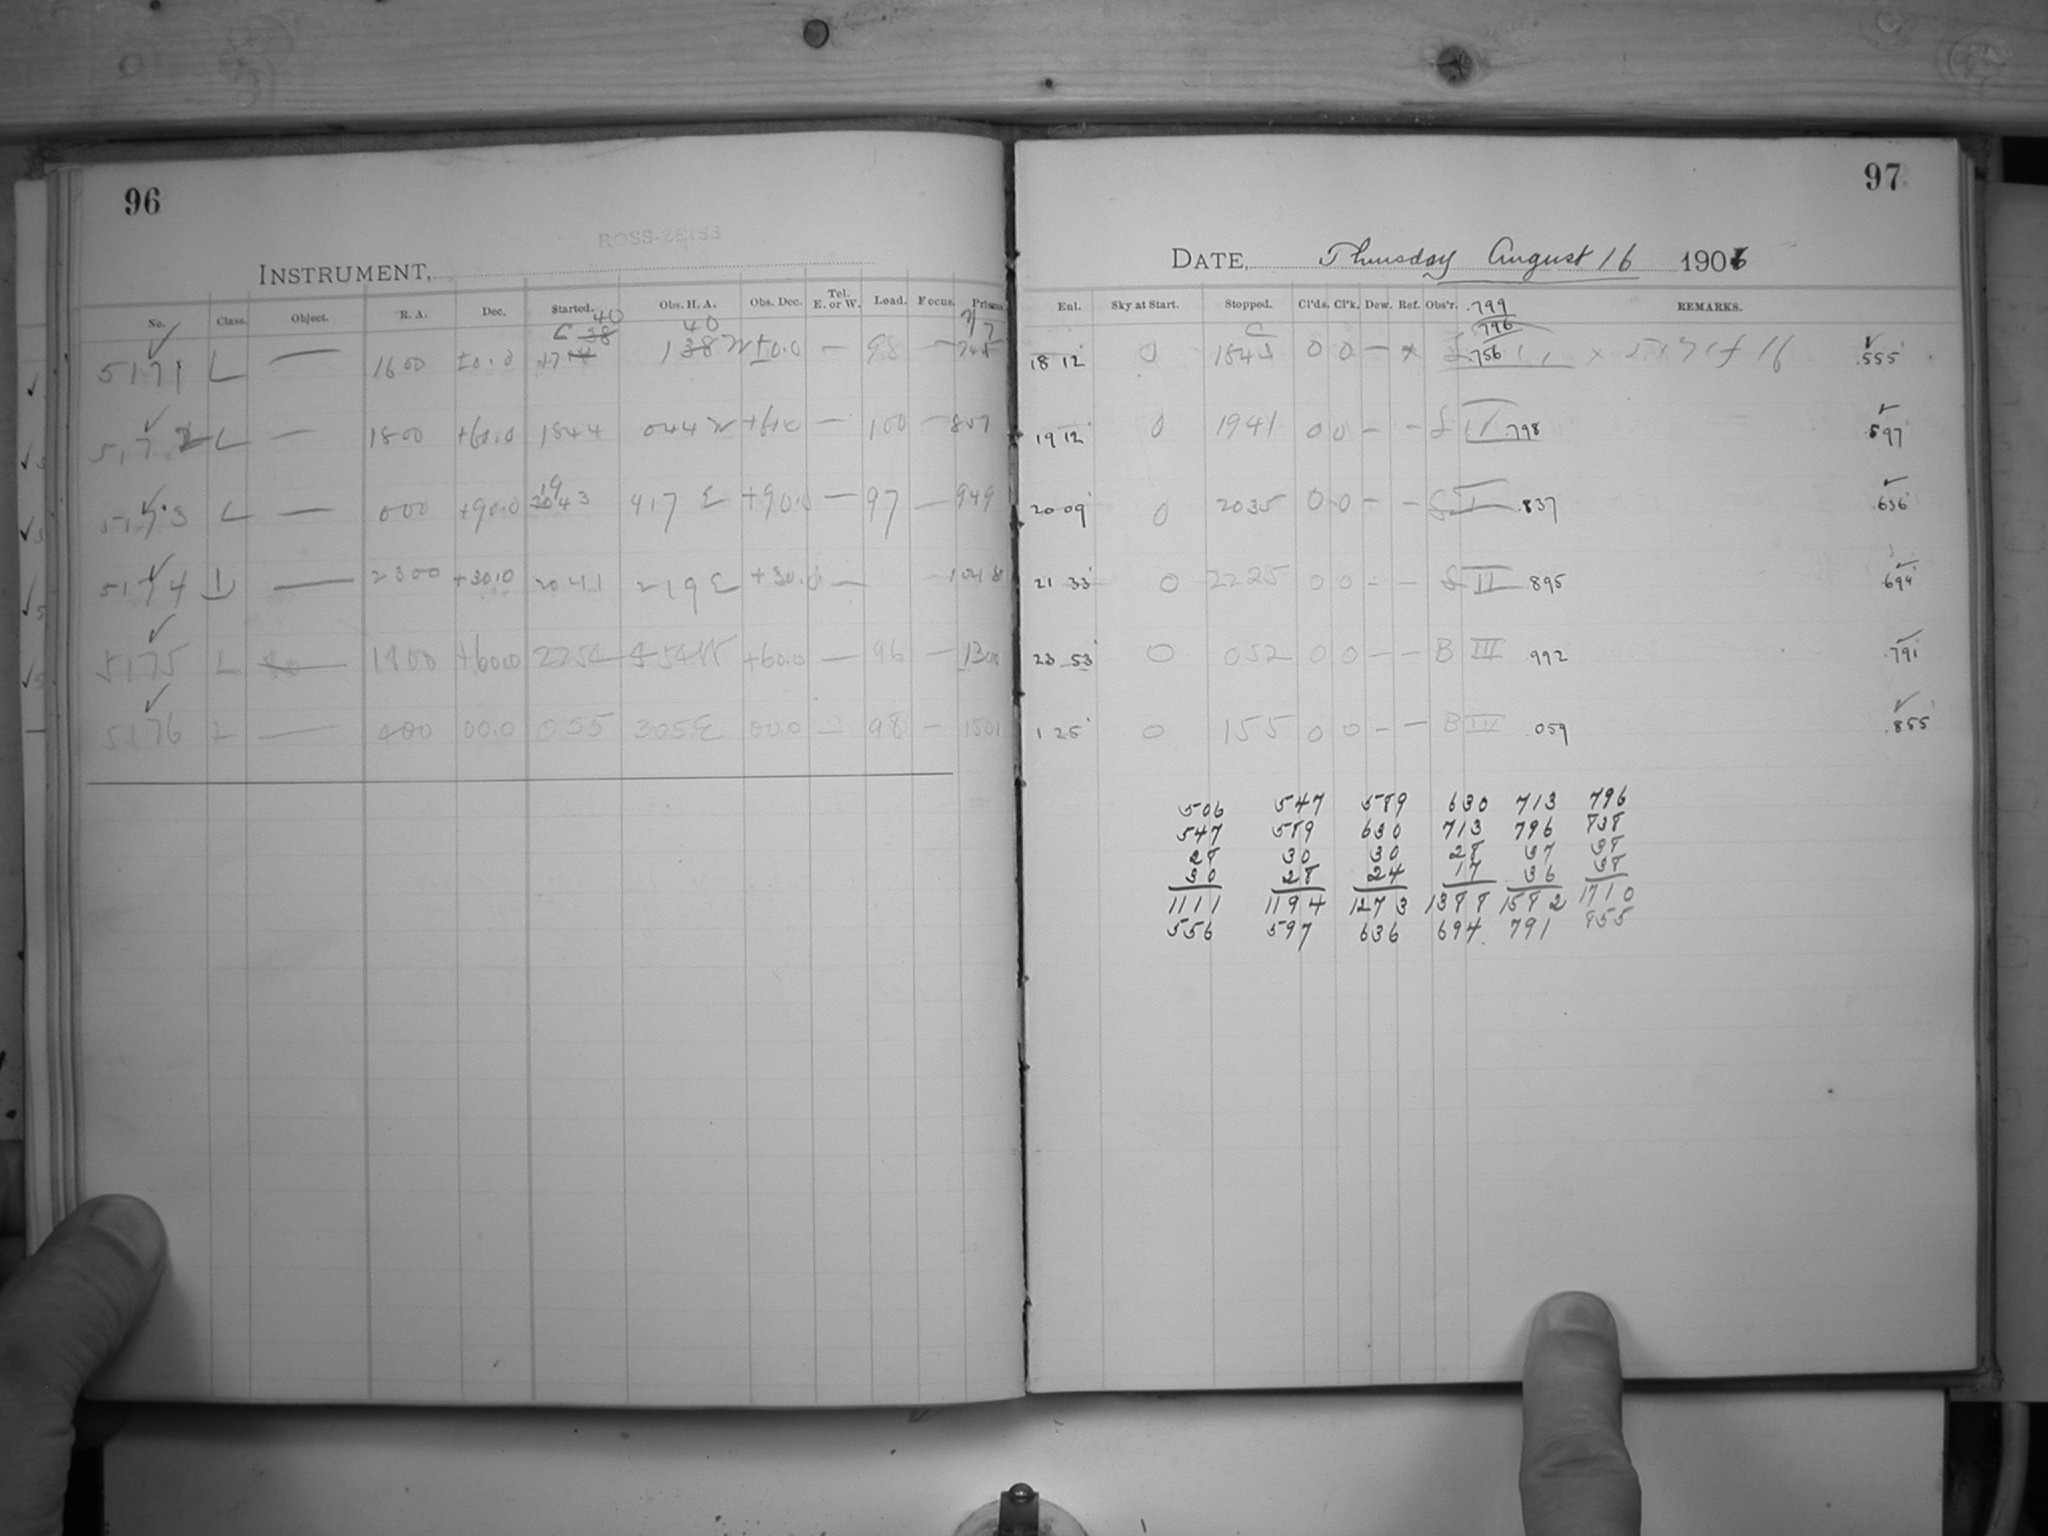 96
ROSS-ZEISS
INSTRUMENT,
No. Class. Object. R. A. Dec. Started. Obs. H. A. Obs. Dec. Tel. E. or W. Load. Focus.
40 40
C 38
5171 L — 1600 ±0.0 17 1 38 W ±0.0 — 98 —
5172 L — 1800 +60.0 1844 044 W +60.0 — 100 — 807
5173 L — 000 +90.0 19 43 417 E +90.0 — 97 — 949
5174 — 2300 +30.0 2041 219 E +30.0 — 1048
5175 L — 1800 +60.0 2254 454 W +60.0 — 96 — 1300
5176 L — 400 00.0 055 305 E 00.0 — 98 — 1501
97
DATE, Thursday August 16 1906
Enl. Sky at Start. Stopped. Cl'ds. Cl'k. Dew. Ref. Obs'r. REMARKS.
.799
.796
18 12 0 1843 0 0 — × .756 × 5171 f 16 .555
19 12 0 1941 0 0 — — S II .798 .597
20 09 0 2035 0 0 — — S I .837 .636
21 33 0 2225 0 0 — — S II 895 .694
23 53 0 052 0 0 — — B III .992 .791
1 25 0 155 0 0 — — B IV .059 .855
506 547 589 630 713 796
547 589 630 713 796 838
28 30 30 28 37 38
30 28 24 17 36 38
1111 1194 1273 1388 1582 1710
556 597 636 694 791 855